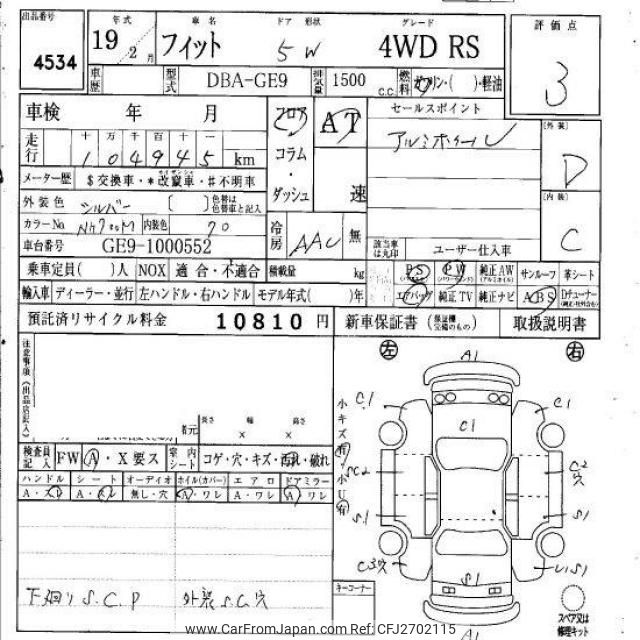 出品番号 年式 車名 ドア 形状 グレード 評価点
4534 19年 2月 フィット 5 W 4WD RS 3
車歴 型式 DBA-GE9 排気量 1500 c.c. 燃料 ガソリン・( )・軽油
車検 年 月 フロア AT セールスポイント
アルミホイール
走行 十 万 千 百 十 一
1 0 4 9 4 5 km コラム・ダッシュ 速
[外装] D
メーター歴 $交換車・*改竄車・#不明車
外装色 シルバー [ ] 色替は色替車と記入
[内装] C
カラーNo. NH700M 内装色 70 冷房 AAC 無
車台番号 GE9-1000552 該当車は丸印 ユーザー仕入車
乗車定員( )人 NOX 適合・不適合 積載量 kg PS PW 純正AW サンルーフ 革シート
輸入車 ディーラー・並行 左ハンドル・右ハンドル モデル年式( )年 エアバッグ 純正TV 純正ナビ ABS Dチューナー
預託済リサイクル料金 10810 円 新車保証書 (保証欄完備のもの) 取扱説明書
注意事項(出品店記入)
左 右
A1
小キズ有 小U有
C1 C1 C1
諸元 長さ × 幅 × 高さ
検査員記入 FW A・X要ス 室内シート コゲ・穴・キズ・汚れ・破れ
SC2 C2穴
ハンドル シート オーディオ ホイル(カバー) エアロ ドアミラー
A・スレ A・スレ 無し・穴 A・ワレ A・ワレ A・ワレ
S1 S1
C3穴 U1S1
下廻り S.C.P 外装S.C穴
キーコーナー
S1
スペア又は修理キット
A1
www.CarFromJapan.com Ref: CFJ2702115